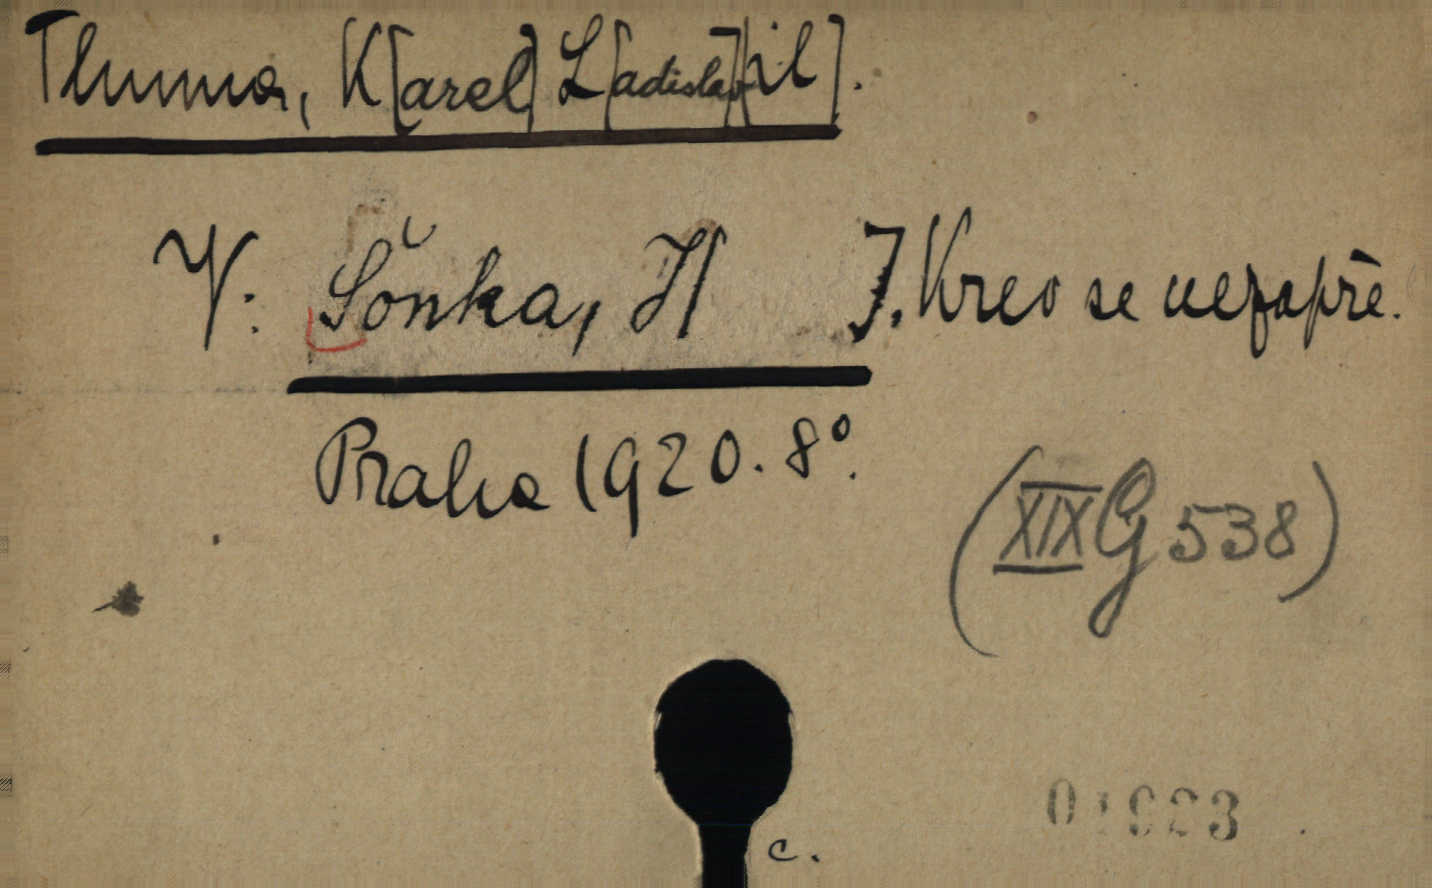 Tluma, K[arel] L[adislav][il].
V: Šonka, H J. Krev se nezapře.
Praha 1920. 8°.
(XIX G 538)
01923
c.